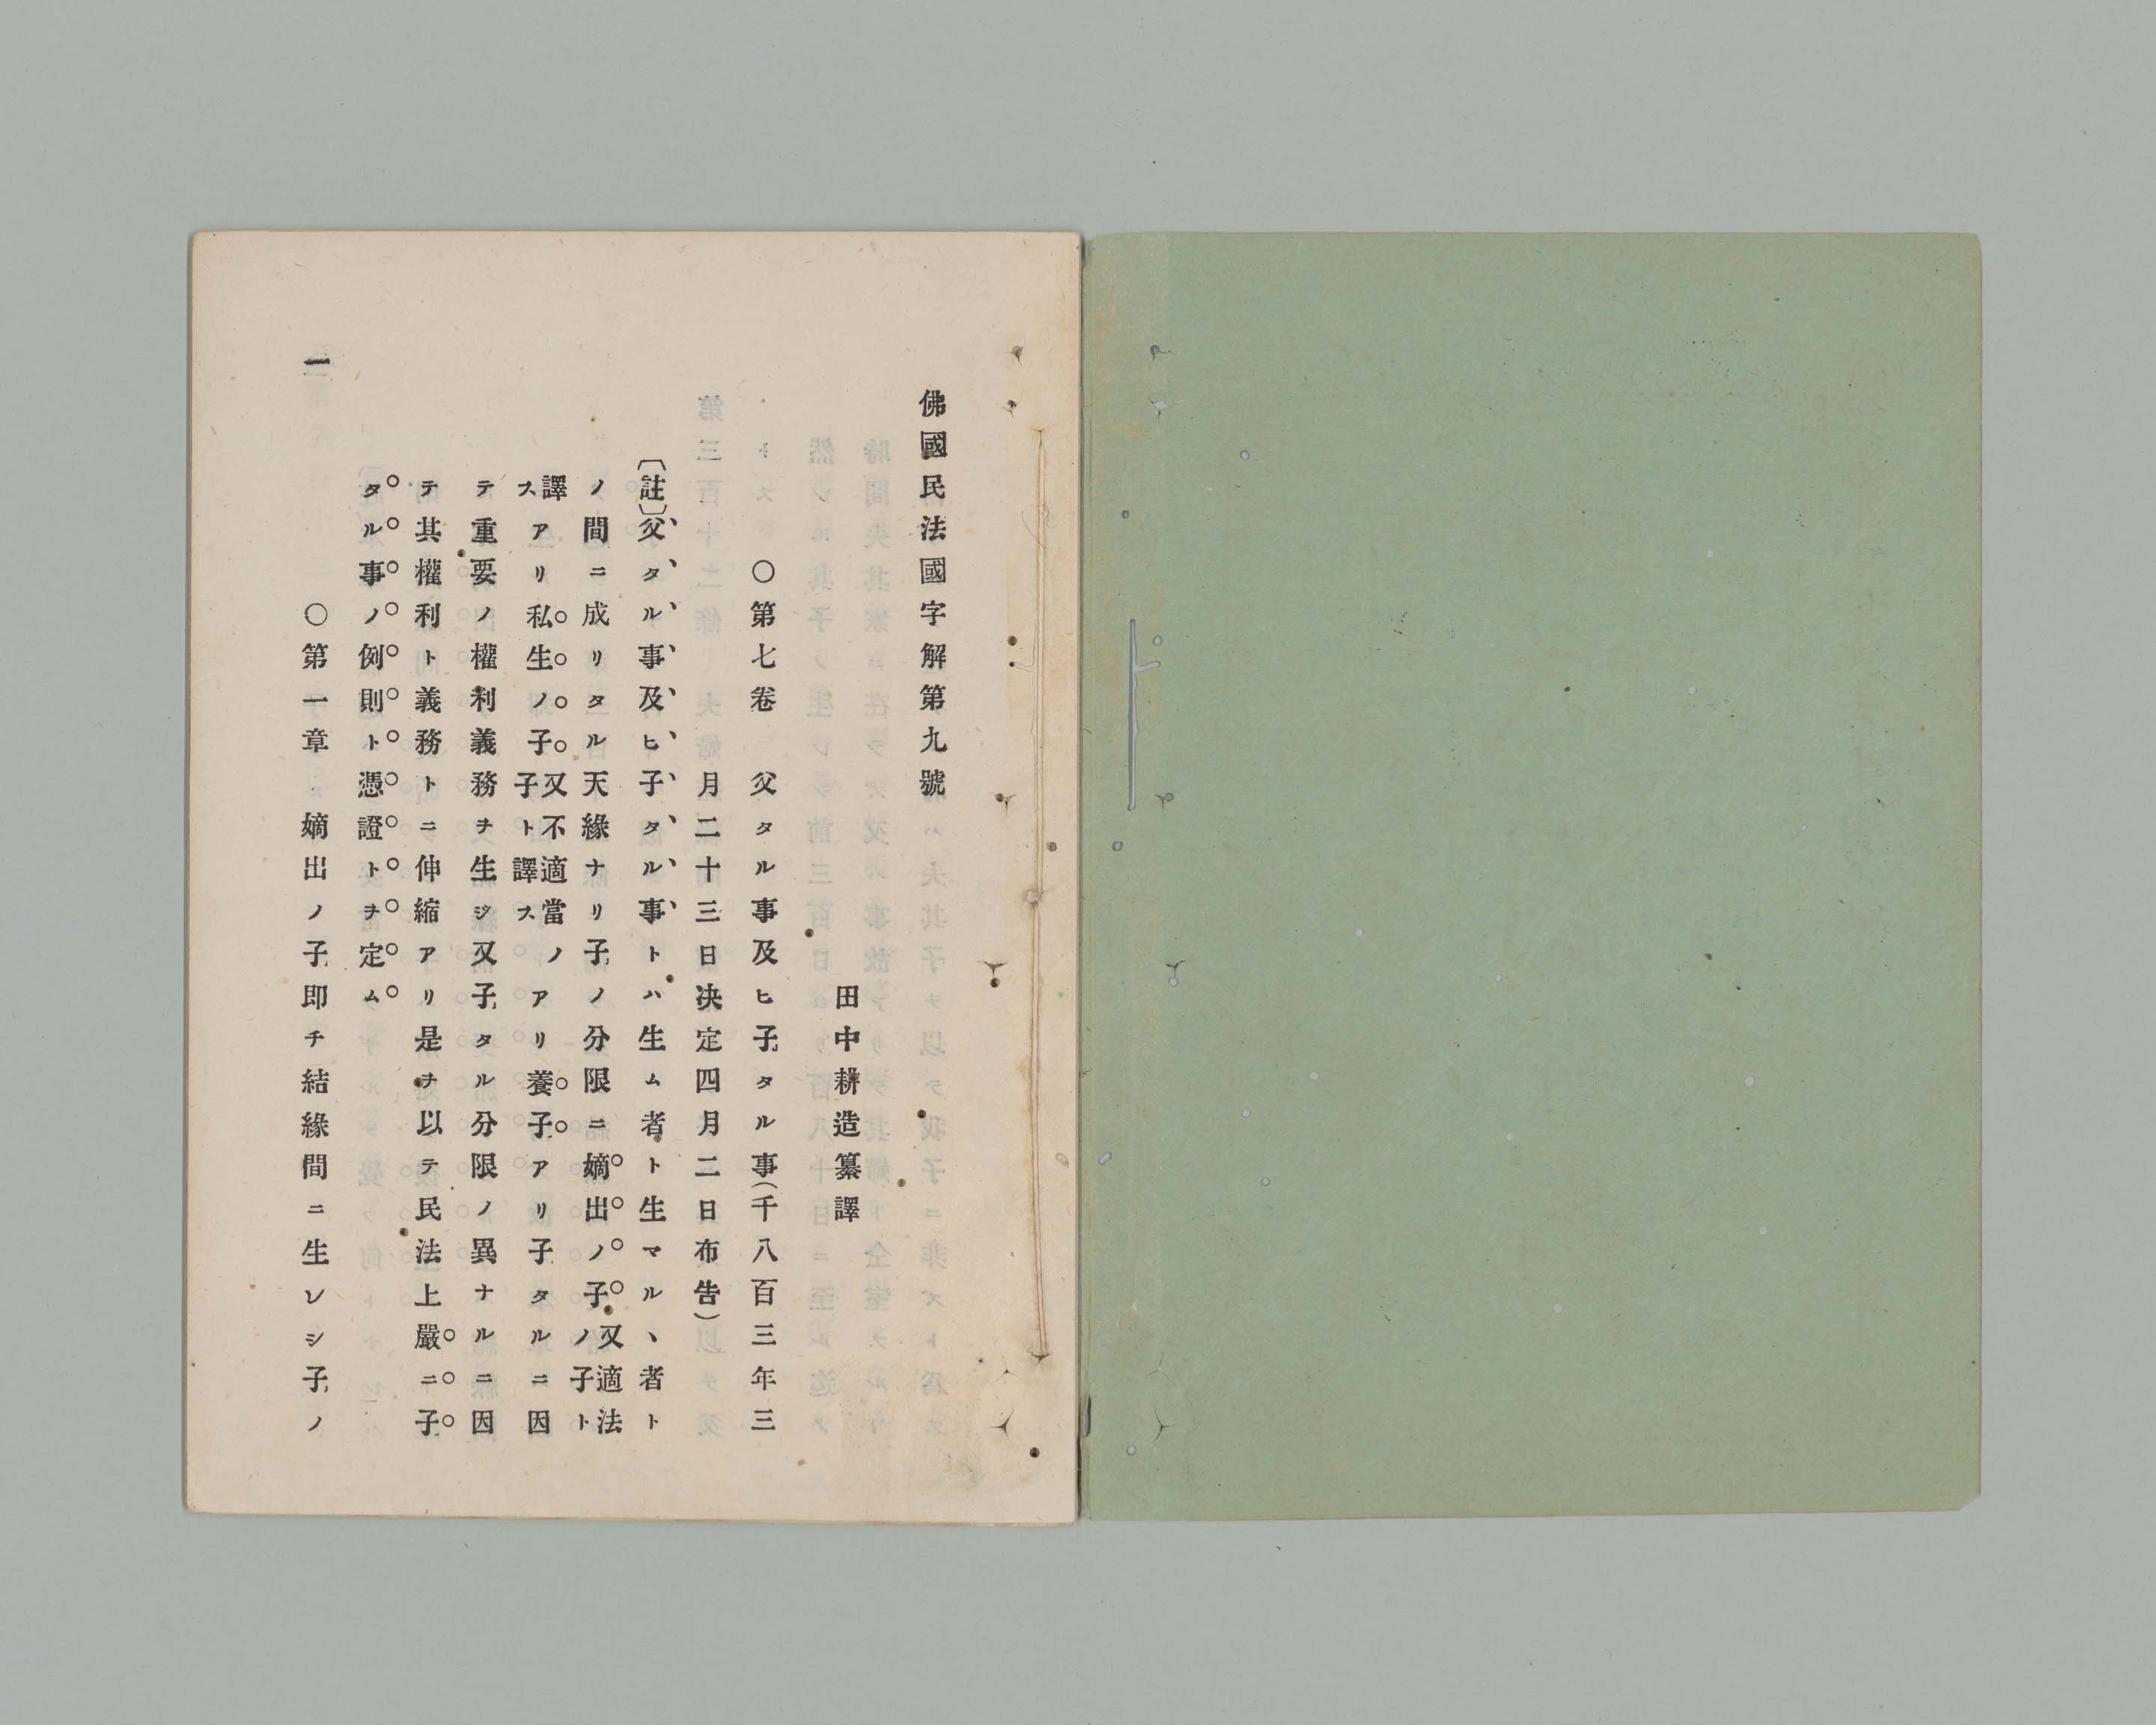 佛國民法國字解第九號
田中耕造纂譯
〇第七卷　父タル事及ヒ子タル事(千八百三年三
月二十三日決定四月二日布告)
〔註〕父タル事及ヒ子タル事トハ生ム者ト生マルヽ者ト
ノ間ニ成リタル天緣ナリ子ノ分限ニ嫡出ノ子又適法ノ子ト
譯スアリ私生ノ子又不適當ノ子ト譯スアリ養子アリ子タルニ因
テ重要ノ權利義務ヲ生ジ又子タル分限ノ異ナルニ因
テ其權利ト義務トニ伸縮アリ是ヲ以テ民法上嚴ニ子
タル事ノ例則ト憑證トヲ定ム
〇第一章　嫡出ノ子即チ結緣間ニ生レシ子ノ
一